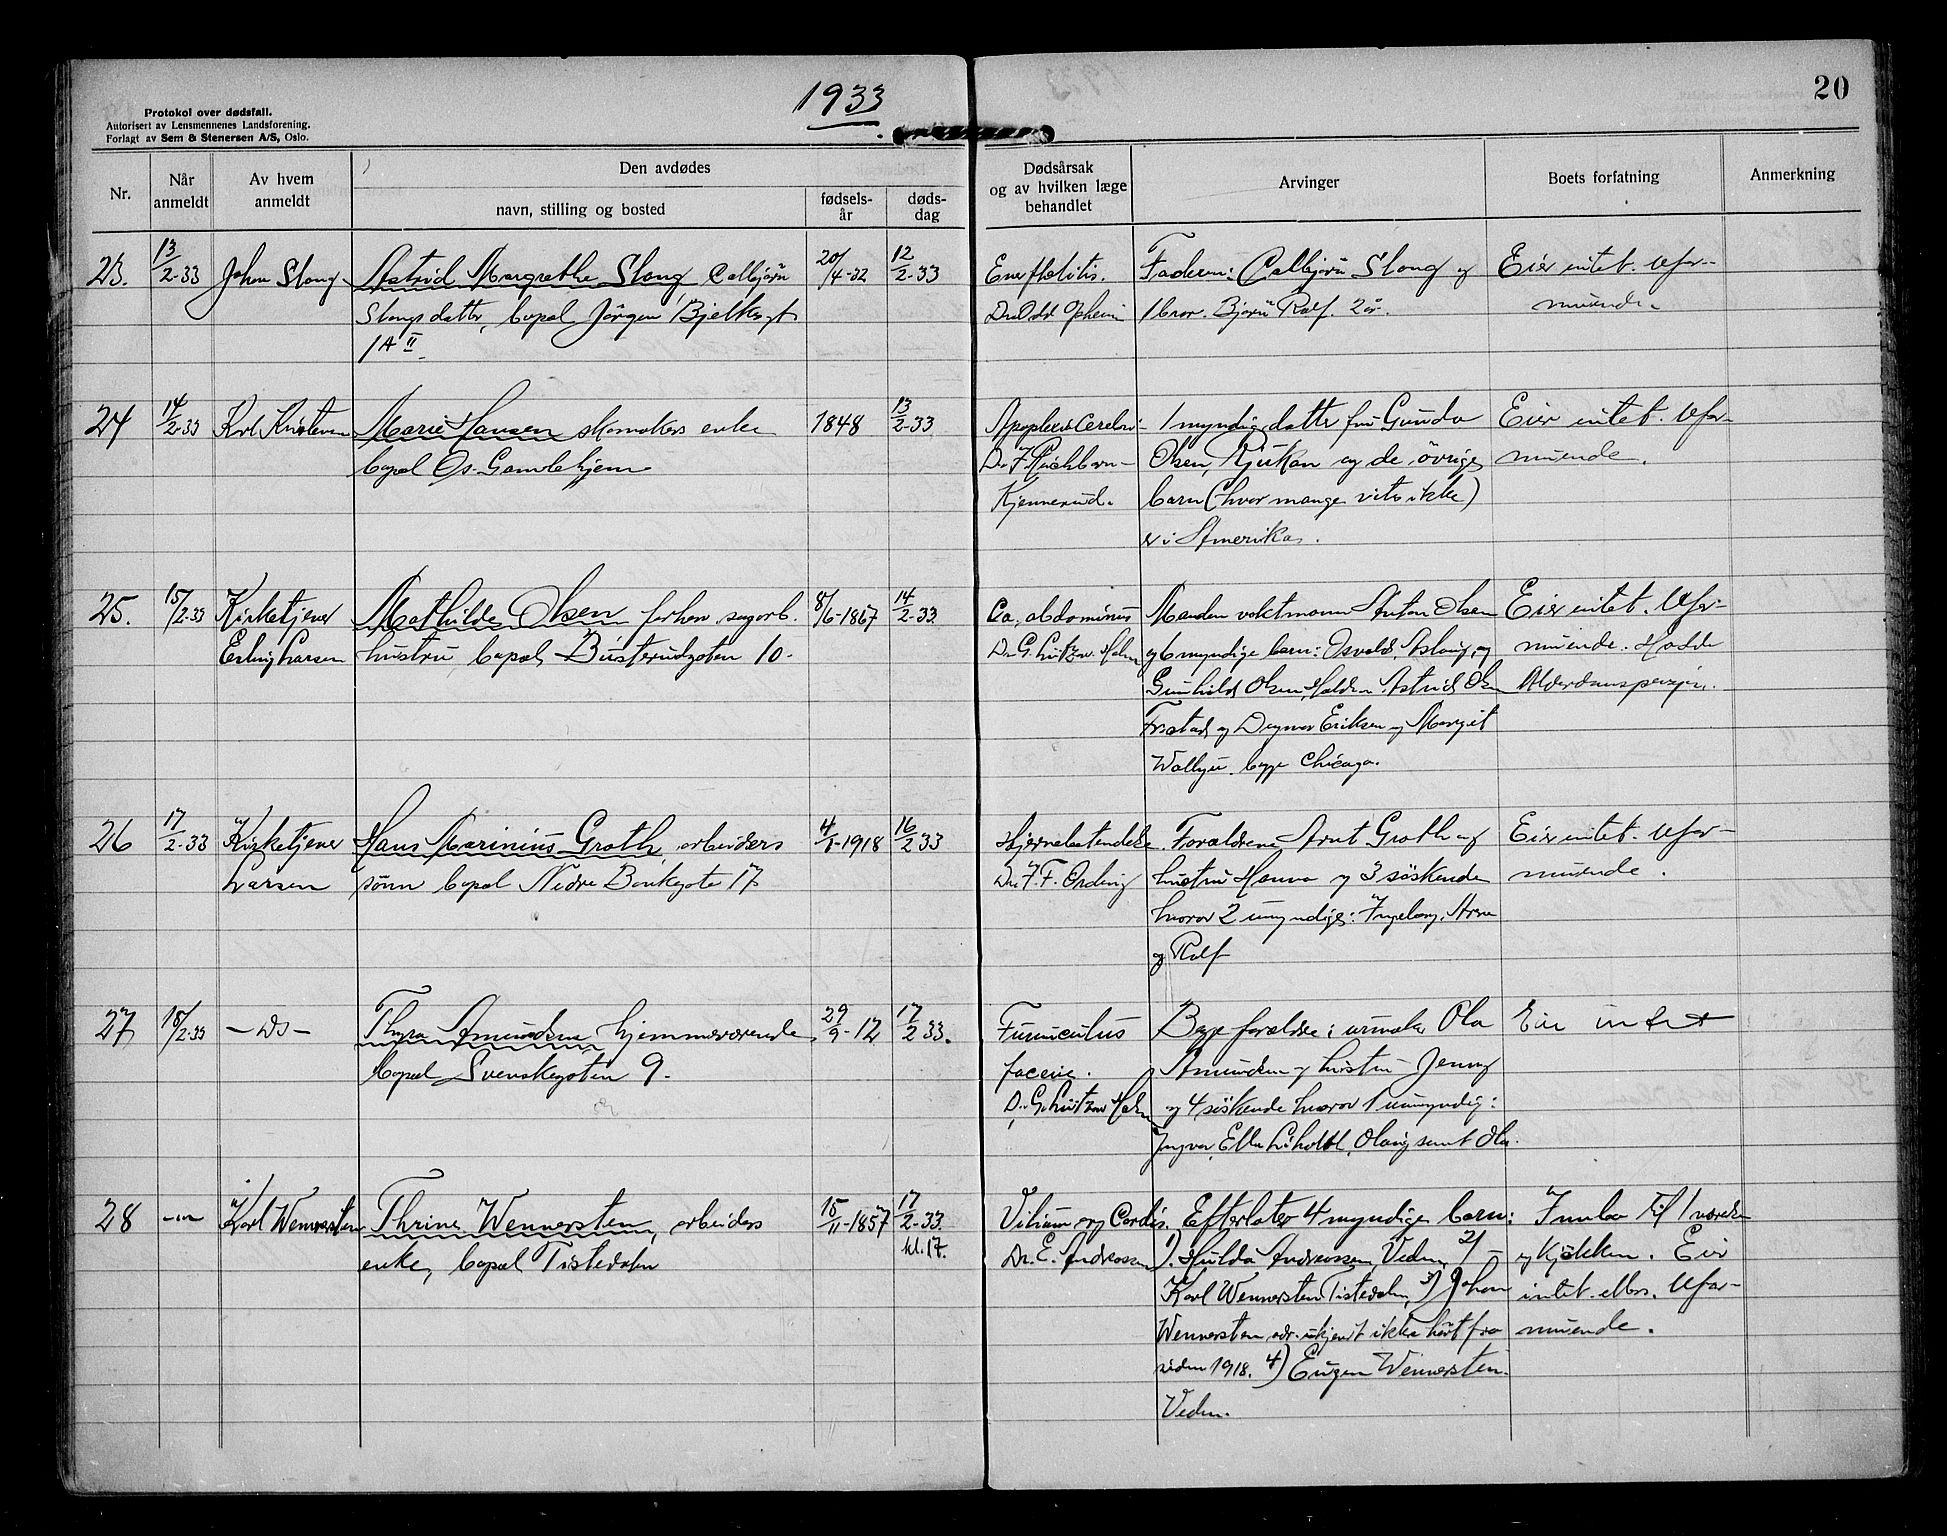 1933
20
Protokol over dødsfall.
Autorisert av Lensmennenes Landsforening.
Forlagt av Sem & Stenersen A/S, Oslo.
Nr.
Når anmeldt
Av hvem anmeldt
Den avdødes
navn, stilling og bosted
fødsels-
år
døds-
dag
Dødsårsak
og av hvilken læge
behandlet
Arvinger
Boets forfatning
Anmerkning
23. 13/2-33 Johan Stang Astrid Margrethe Stang
Stangs datter, bopel Jørgen Bjelkesgt
1A II
20/4-32
12/2-33
Dr Odd Opheim
Faderen: Stang og
1 bror. Bjørn Rolf. 2 år.
Eier intet. Ufor-
muende.
24 14/2-33 Karl Kristensen Marie Hansen skomakers enke
bopel Os Gamlehjem
1848
13/2-33
Apoplexi Cerebri
Dr. F.
Kjennerud.
1 myndig datter fru Gunda
Olsen, Rjukan og de øvrige
barn (hvor mange vites ikke)
er i Amerika.
Eier intet. Ufor-
muende.
25. 15/2-33 Kirketjener
Erling Larsen
Mathilde Olsen forhen sagarb.
hustru, bopel Busterudgaten 10.
8/6-1867
14/2-33.
Ca. abdominus
Dr. G. Lützow Holm
Manden vaktmann Anton Olsen
og 6 myndige barn: Osvald, Aslaug, og
Gunhild Olsen, Halden. Astrid Olsen
og Dagmar Eriksen og Margit
begge Chicago.
Eier intet. Ufor-
muende. Hadde
Alderdomspensjon.
26 17/2-33 Kirketjener
Larsen
Hans Marinius Groth, arbeiders
sønn bopel Nedre Bankegate 17
4/1-1918
16/2 33
Hjernebetendelse.
Dr. F. F. Ording
Forældrene Arnt Groth og
hustru Hanna og 3 søskende
hvorav 2 umyndige: Ingeborg, Arne
og Rolf
Eier intet. Ufor-
muende.
27 18/2-33 — Ds —
Thyra Amundsen, hjemmeværende
bopel Svenskegaten 9.
29/9-12
17/2 33.
Furunculus
faciei.
Dr. G. Lützow Holm
Begge forældre: urmaker Ola
Amundsen og hustru Jenny
og 4 søskende hvorav 1 umyndig:
Yngvar, Ella Liholt, Olaug samt Ola.
Eier intet
28 Karl Wennersten Thrine Wennersten, arbeiders
enke, bopel Tistedalen
15/11-1857
17/2-33.
kl. 17.
Vitium org Cordis.
Dr. E. Andreassen
Efterlater 4 myndige barn:
1). Hulda Andreassen, Veden, 2)
Karl Wennersten Tistedalen, 3) Johan
Wennersten adr. ukjendt ikke hørt fra
siden 1918. 4) Eugen Wennersten.
Veden.
Innbo til 1 værelse
og kjøkken. Eier
intet ellers. Ufor-
muende.